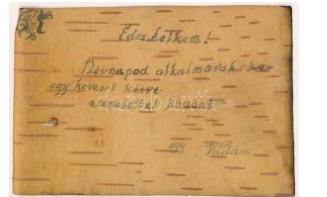 Édes Lelkem!
Névnapod alkalmával bár
egy kevéset késve
szeretettel köszönt
egy "Vadám"